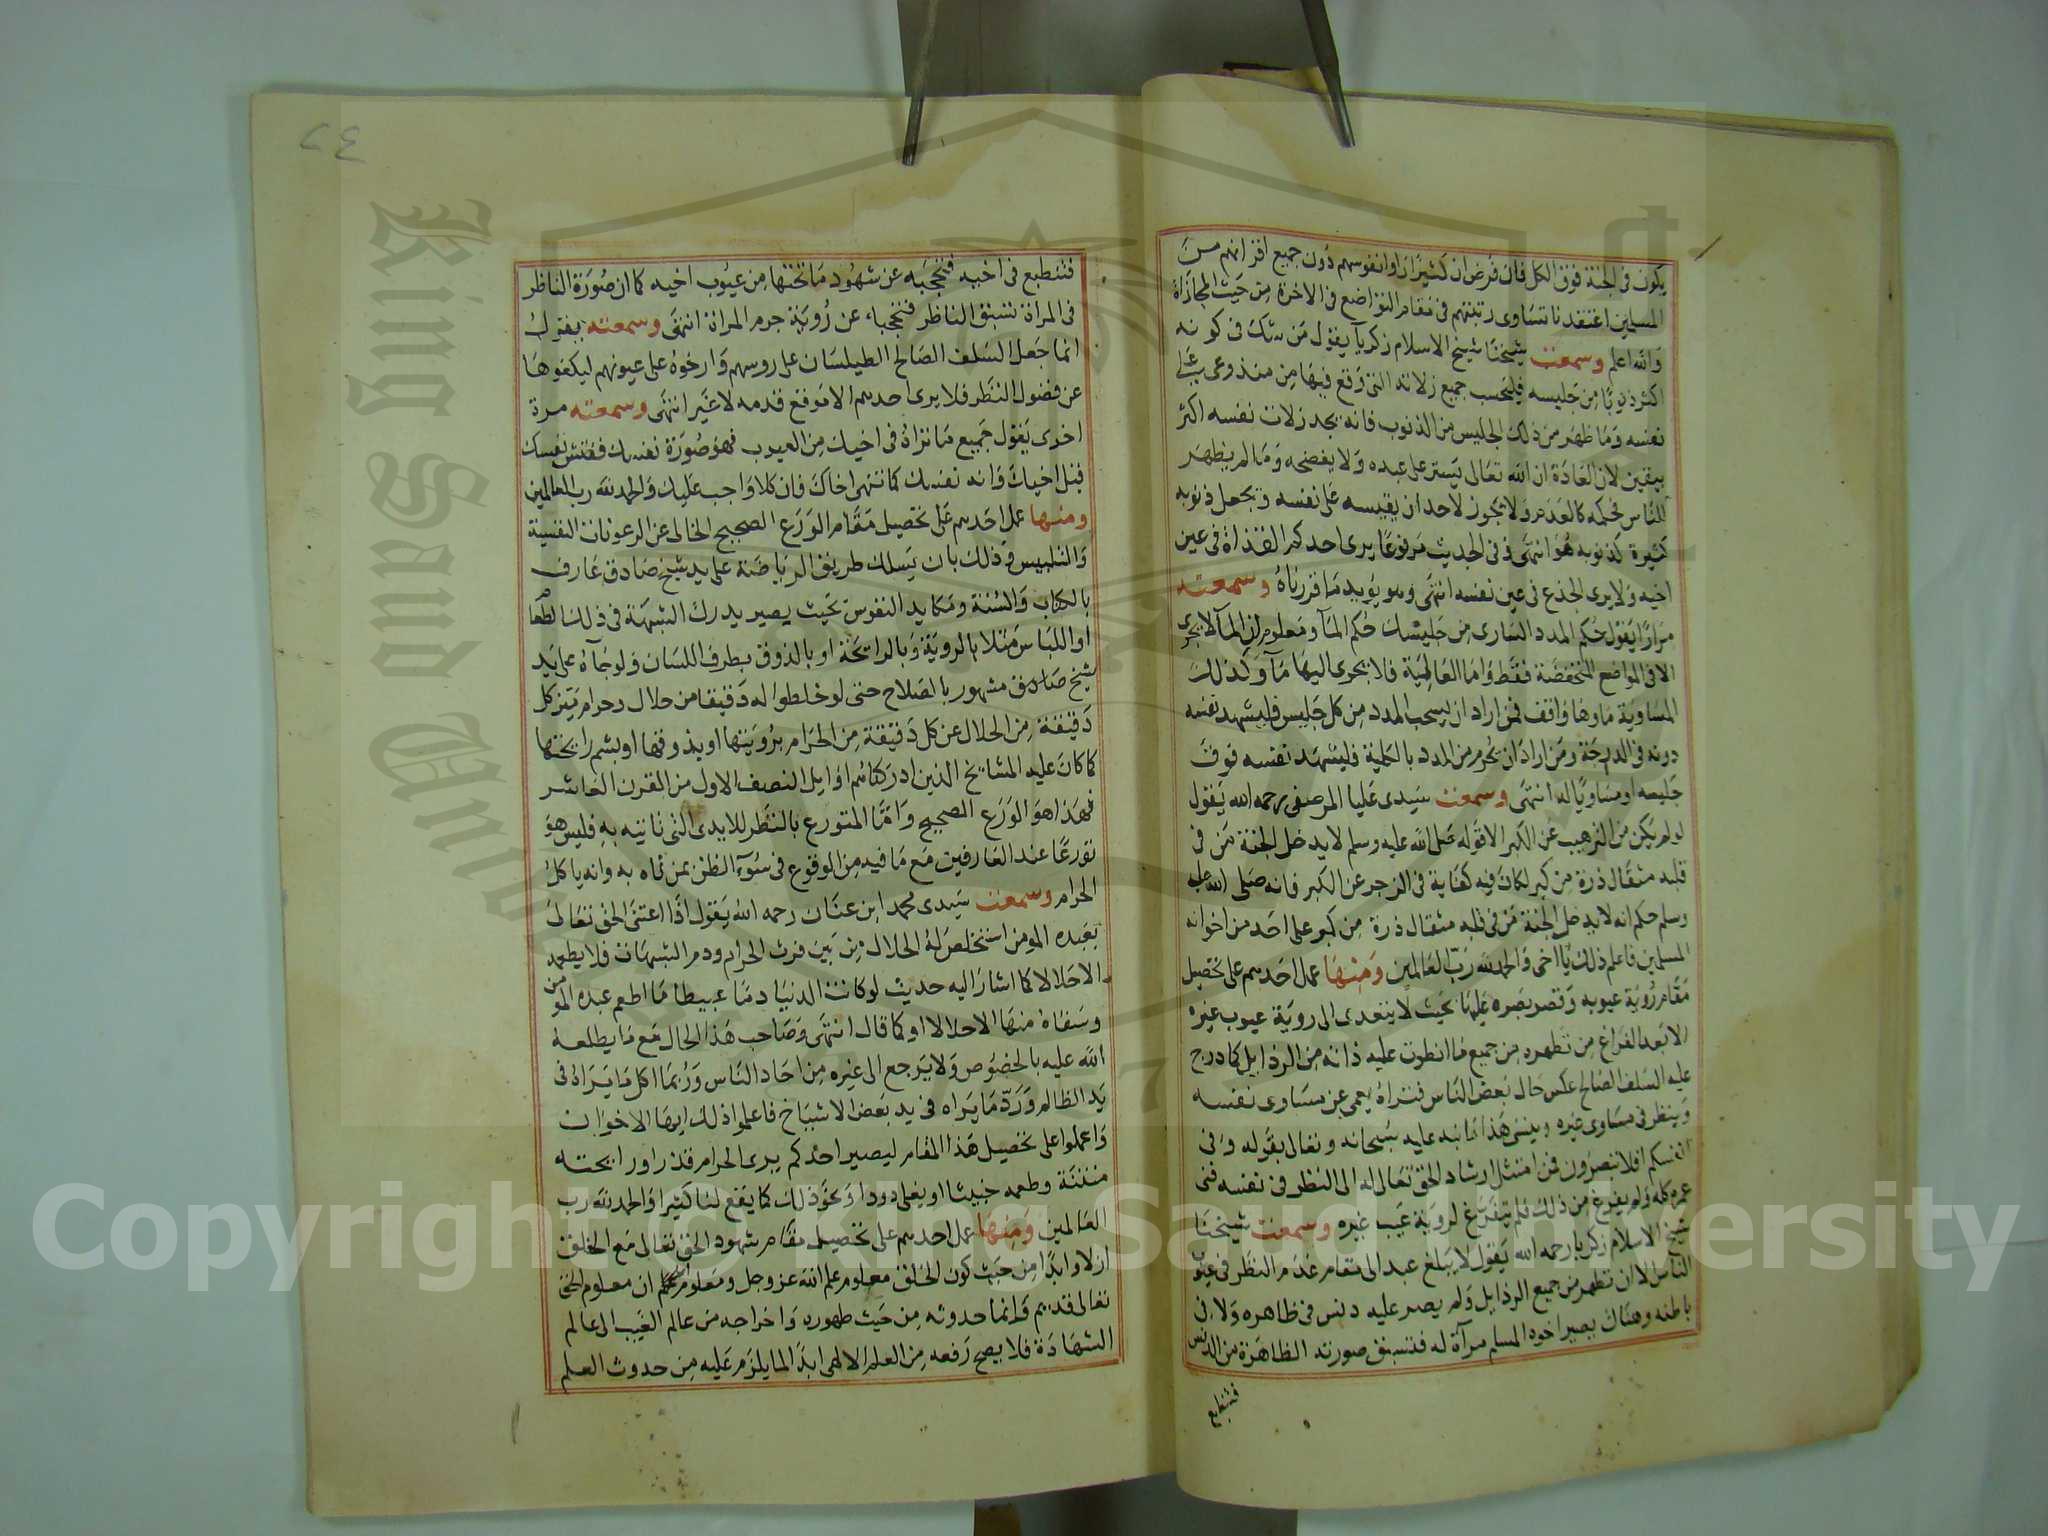 يكون في الجنة فوق الكل فان فرض ان كثيرا راوا نفوسهم دون جميع اقرانهم من
المسلمين اعتقدنا تساوى رتبتهم في مقام التواضع في الاخرة من حيث المجازاة
والله اعلم وسمعت شيخنا شيخ الاسلام زكريا يقول من شك في كونه
اكثر ذنوبا من جليسه فليحسب جميع زلاته التي وقع فيها من منذ وعى على
نفسه وما ظهر من ذلك الجليس من الذنوب فانه يجد زلات نفسه اكثر
بيقين لان العادة ان الله تعالى يستر على عبده ولا يفضحه وما لم يظهر
للناس فحكمه كالعدم ولا يجوز لاحد ان يقيسه على نفسه ويجعل ذنوبه
كثيرة كذنوبه هو انتهى وفي الحديث مرفوعا يرى احدكم القذاة في عين
اخيه ولا يرى الجذع في عين نفسه انتهى وهو يويد ما قررناه وسمعته
مرارا يقول حكم المدد السارى من جليسك حكم الماء ومعلوم ان الماء لا يجرى
الا في المواضع المنخفضة فقط واما العالية فلا يجرى اليها ماء وكذلك
المساوية ماوها واقف فمن اراد ان يسحب المدد من كل جليس فليشهد نفسه
دونه في الدرجة ومن اراد ان يحرم من المدد بالكلية فليشهد نفسه فوق
جليسه او مساويا له انتهى وسمعت سيدى عليا المرصفي رحمه الله يقول
لو لم يكن من الترهيب عن الكبر الا قوله صلى الله عليه وسلم لا يدخل الجنة من في
قلبه مثقال ذرة من كبر لكان فيه كفاية في الزجر عن الكبر فانه صلى الله عليه
وسلم حكم انه لا يدخل الجنة من في قلبه مثقال ذرة من كبر على احد من اخوانه
المسلمين فاعلم ذلك يا اخي والحمد لله رب العالمين ومنها عمل احدهم على تحصيل
مقام روية عيوبه وقصر بصره عليها بحيث لا يتعدى الى روية عيوب غيره
الا بعد الفراغ من تطهره من جميع ما انطوت عليه ذاته من الرذايل كما درج
عليه السلف الصالح عكس حال بعض الناس فتراه يعمى عن مساوى نفسه
وينظر في مساوى غيره وينسى هذا ما نبه عليه سبحانه وتعالى بقوله وفي
انفسكم افلا تبصرون فمن امتثل ارشاد الحق تعالى له الى النظر في نفسه فنى
عمره كله ولم يفرغ من ذلك فلم يتفرغ لروية عيب غيره وسمعت شيخنا
شيخ الاسلام زكريا رحمه الله يقول لا يبلغ عبد الى مقام عدم النظر في عيوب
الناس الا ان تطهر من جميع الرذايل ولم يصر عليه دنس في ظاهره ولا في
باطنه وهناك يصير اخوه المسلم مرآة له فتسبق صورته الظاهرة من الدنس
فتنطبع
فتنطبع في اخيه فتحجبه عن شهود ما تحتها من عيوب اخيه كما ان صورة الناظر
في المراة تسبق الناظر فتحجبه عن روية جرم المراة انتهى وسمعته يقول
انما جعل السلف الصالح الطيلسان على روسهم وارخوه على عيونهم ليكفوها
عن فضول النظر فلا يرى احدهم الا موقع قدمه لا غير انتهى وسمعته مرة
اخرى يقول جميع ما تراه في اخيك من العيوب فهو صورة نفسك ففتش نفسك
قبل اخيك وانه نفسك كما تنهى اخاك فان كلا واجب عليك والحمد لله رب العالمين
ومنها عمل احدهم على تحصيل مقام الورع الصحيح الخالى عن الرعونات النفسية
والتلبيس وذلك بان يسلك طريق الرياضة على يد شيخ صادق عارف
بالكتاب والسنة ومكايد النفوس بحيث يصير يدرك الشبهة في ذلك الطعام
او اللباس مثلا بالروية وبالرايحة او بالذوق بطرف اللسان ولو جاه على يد
شيخ صادق مشهور بالصلاح حتى لو خلطوا له دقيقا من حلال وحرام يميز كل
دقيقة من الحلال عن كل دقيقة من الحرام بروبيتها او يذوقها او يشم رايحتها
كما كان عليه المشايخ الذين ادركناهم اوايل النصف الاول من القرن العاشر
فهذا هو الورع الصحيح واما المتورع بالنظر للايدى التي تاتيه به فليس هو
تورعا عند العارفين مع ما فيه من الوقوع في سوء الظن بمن جاه به وانه ياكل
الحرام وسمعت سيدى محمد ابن عنان رحمه الله يقول اذا اعتنى الحق تعالى
بعبده المومن استخلص له الحلال من بين فرث الحرام ودم الشبهات فلا يطعمه
الا حلالا كما اشار اليه حديث لو كانت الدنيا دما عبيطا ما اطعم عبده المومن
وسقاه منها الا حلالا او كما قال انتهى وصاحب هذا الحال مع ما يطلعه
الله عليه بالخصوص ولا يرجع الى غيره من احاد الناس وربما اكل ما يراه في
يد الظالم ورد ما يراه في يد بعض الاشياخ فاعلموا ذلك ايها الاخوان
واعملوا على تحصيل هذا المقام ليصير احدكم يرى الحرام قذرا ورايحته
منتنة وطعمه خبيثا او يغلى دودا ونحو ذلك كما يقع لنا كثيرا والحمد لله رب
العالمين ومنها عمل احدهم على تحصيل مقام شهود الحق تعالى مع الخلق
ازلا وابدا من حيث كون الخلق معلوم علم الله عز وجل ومعلوم ان معلوم الحق
تعالى قديم وانما حدوثه من حيث ظهوره واخراجه من عالم الغيب الى عالم
الشهادة فلا يصح رفعه من العلم الالهى ابدا لما يلزم عليه من حدوث العلم
٢٤
King Saud University
Copyright © King Saud University